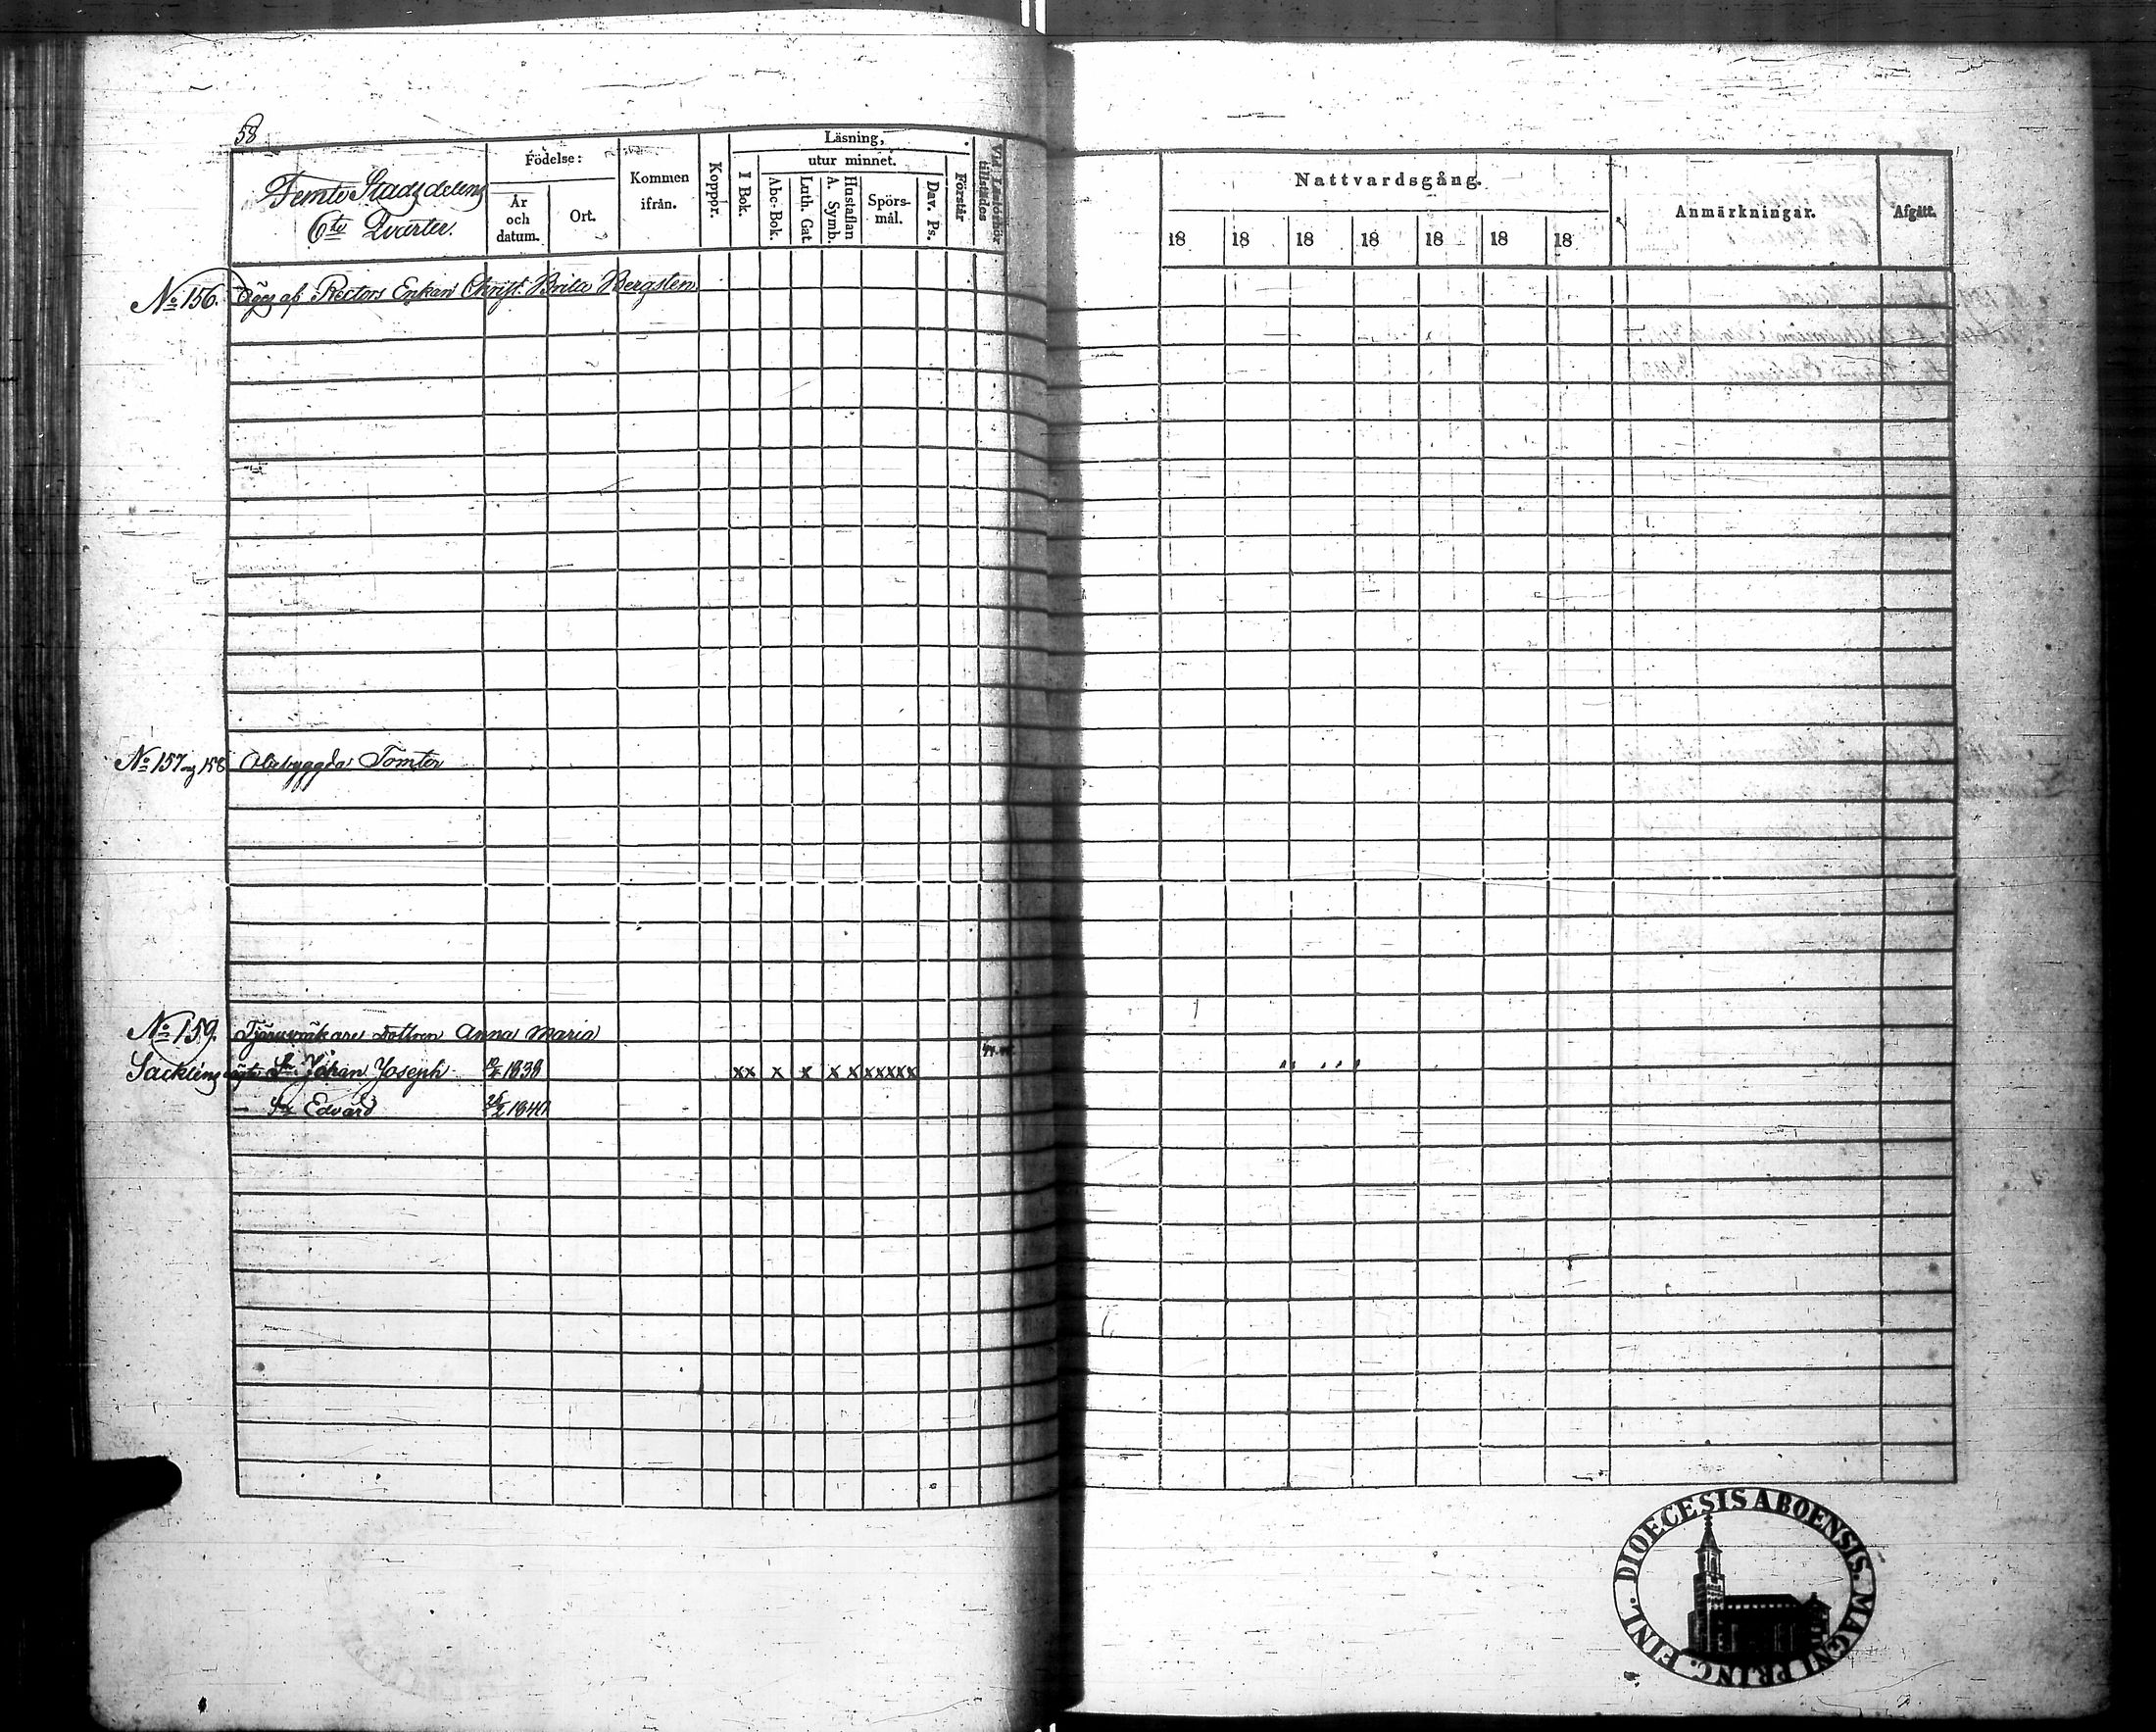 58
Femte Stadsdelens
6te Qvarter.
Födelse:
År och datum.
Ort.
Kommen ifrån.
Koppor.
Läsning,
I Bok.
utur minnet.
Abc-Bok.
Luth. Cat.
Hustaflan
A. Symb.
Spörsmål.
Dav. Ps.
Förstår
Vid Läsförhör tillstädes
Nattvardsgång.
18 18 18 18 18 18 18
Anmärkningar.
Afgått.
No 156. Äges af Rectors Enkan Christ. Brita Bergsten
No 157 og 158 Obebyggda Tomter
No 159. Anna Maria
Sacklins Johan Joseph 1838 xx x x x x xxxxx
— Edvard 1840
DIOECESIS ABOENSIS. MAGNI PRINC. FINL.